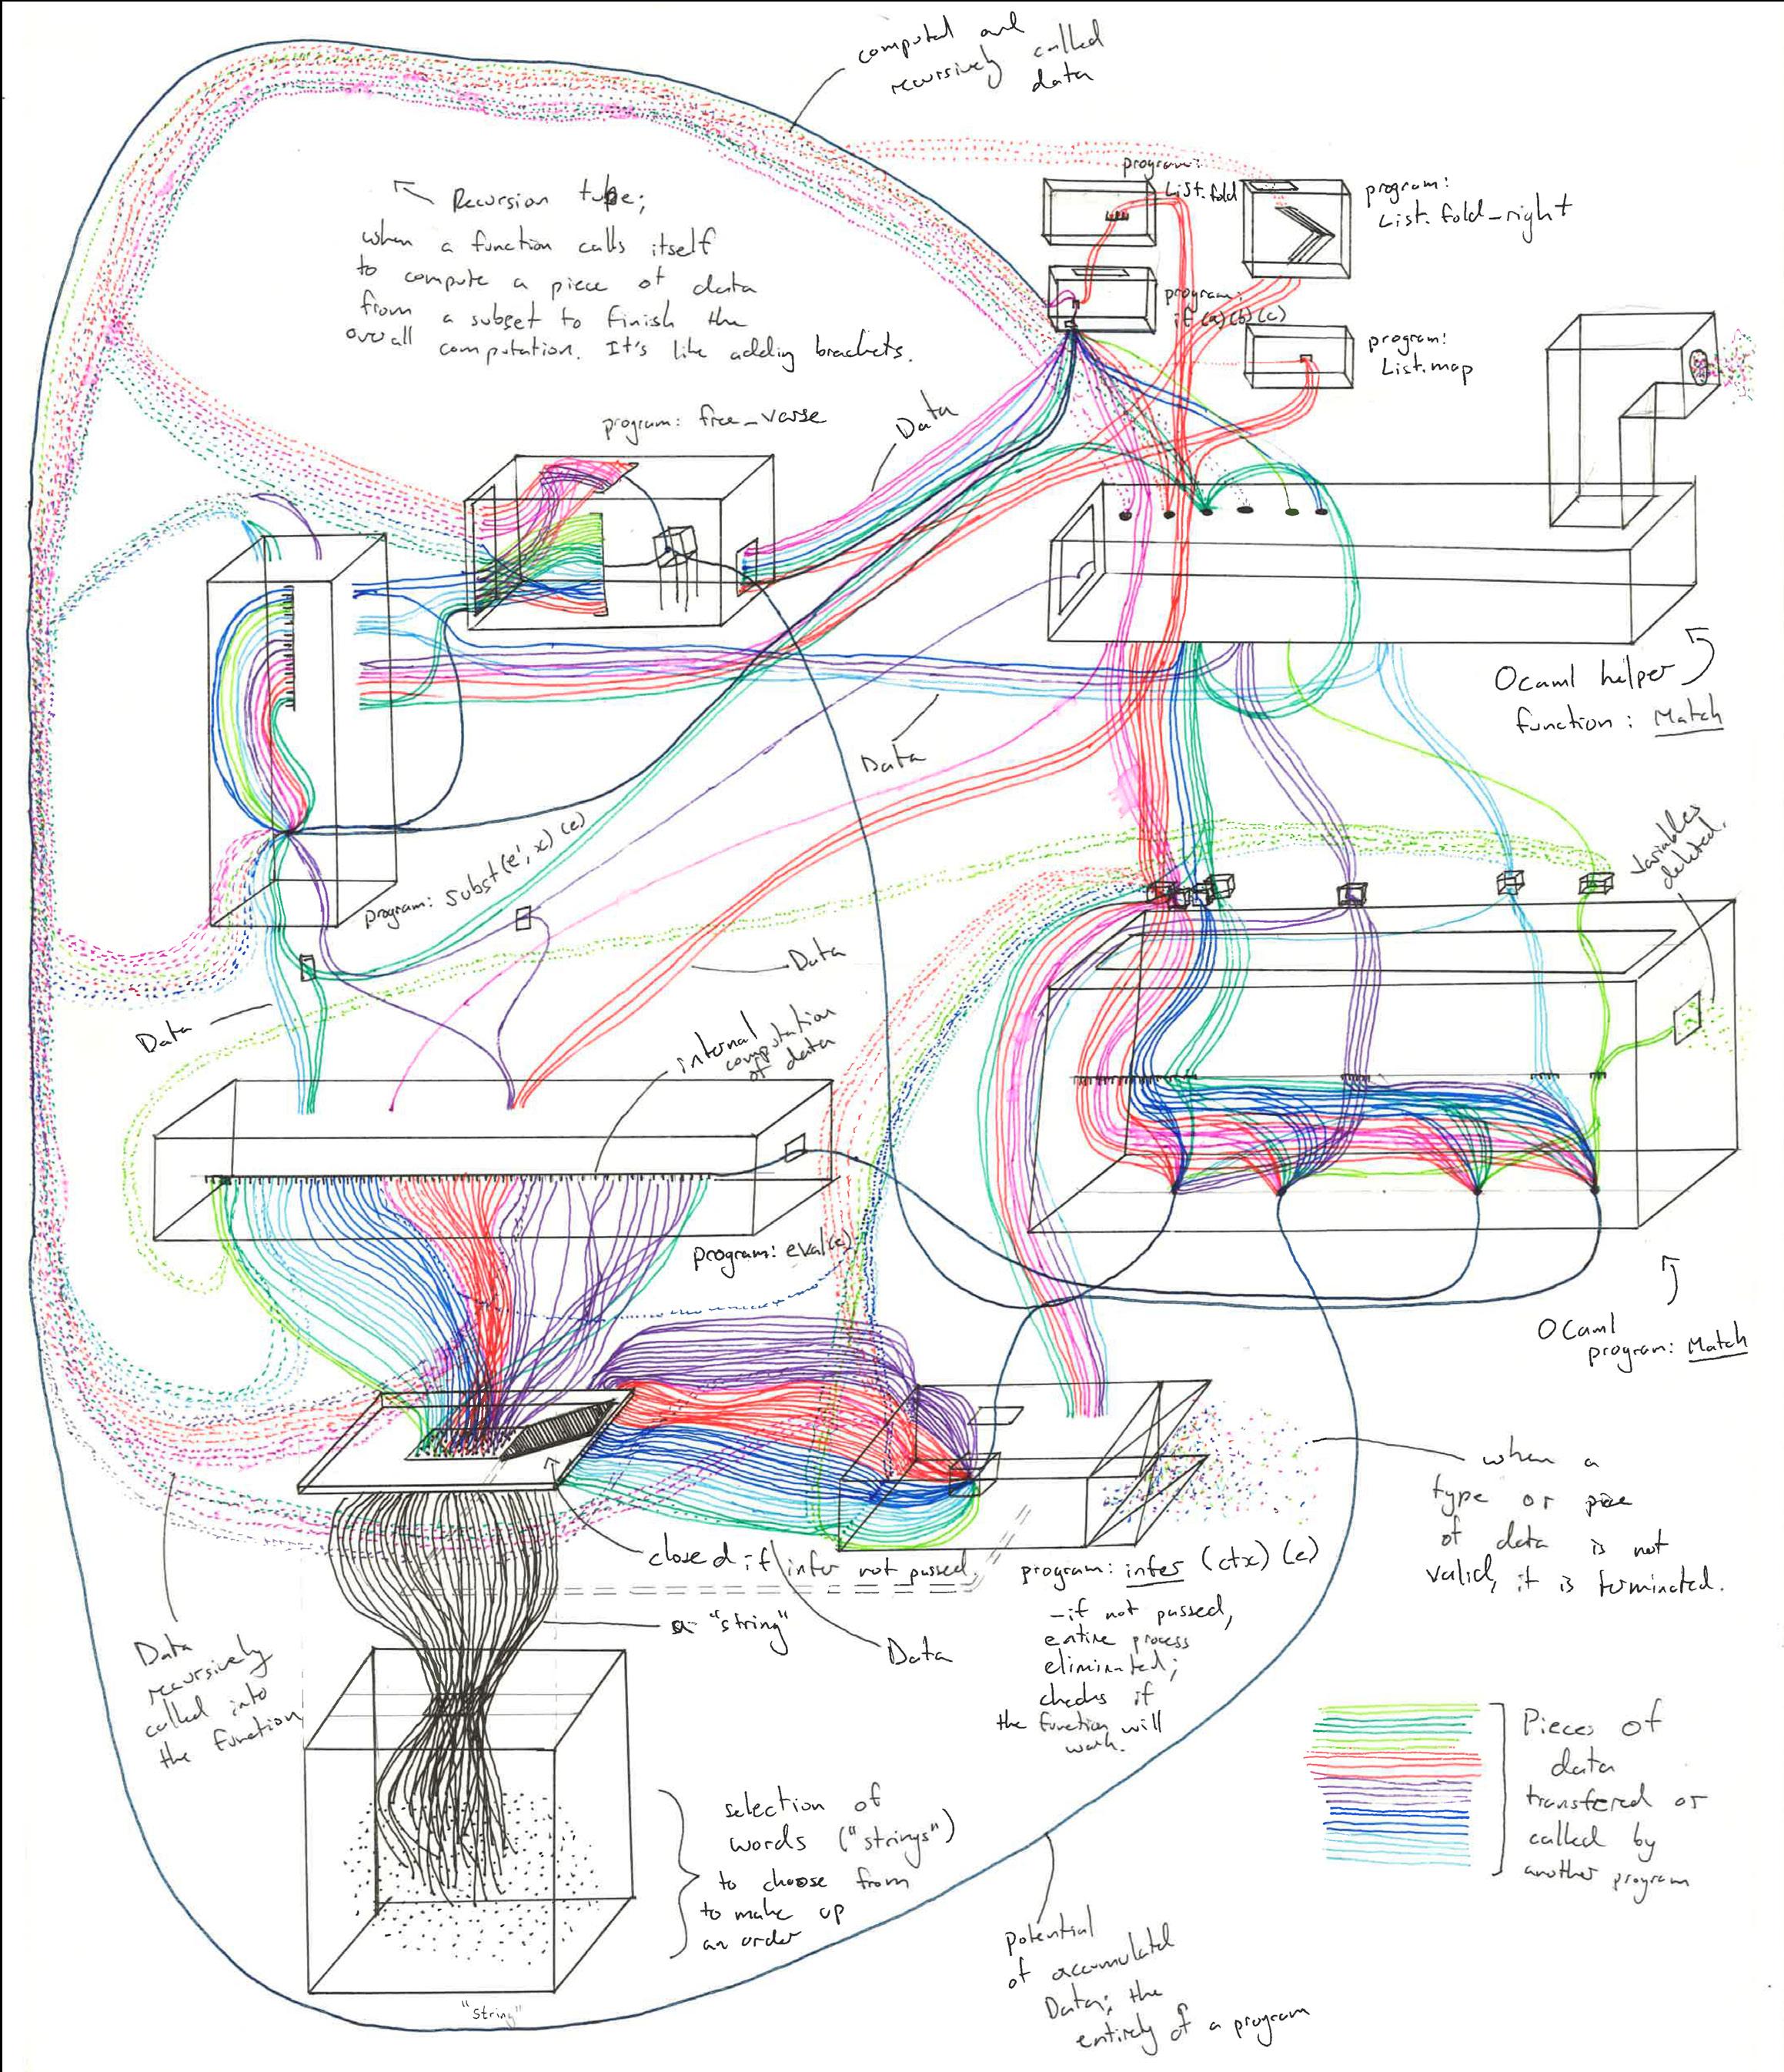 computed and
recursively called
data
Recursion tube;
when a function calls itself
to compute a piece of data
from a subset to finish the
overall computation. It's like adding brackets.
program:
List.fold
program:
List.fold_right
program:
if (a)(b)(c)
program:
List.map
program: free_varse
Data
Ocaml helper
function: Match
Data
program: subst(e', x)(e)
Variables
deleted.
Data
Data
internal
computation
of data
program: eval(e)
OCaml
program: Match
when a
type or piece
of data is not
valid, it is terminated.
closed if infer not passed.
program: infer (ctx)(e)
-if not passed,
entire process
eliminated;
checks if
the function will
work.
a "string"
Data
Data
recursively
called into
the function
selection of
words ("strings")
to choose from
to make up
an order
Pieces of
data
transfered or
called by
another program
potential
of accumulated
Data; the
entirety of a program
"string"